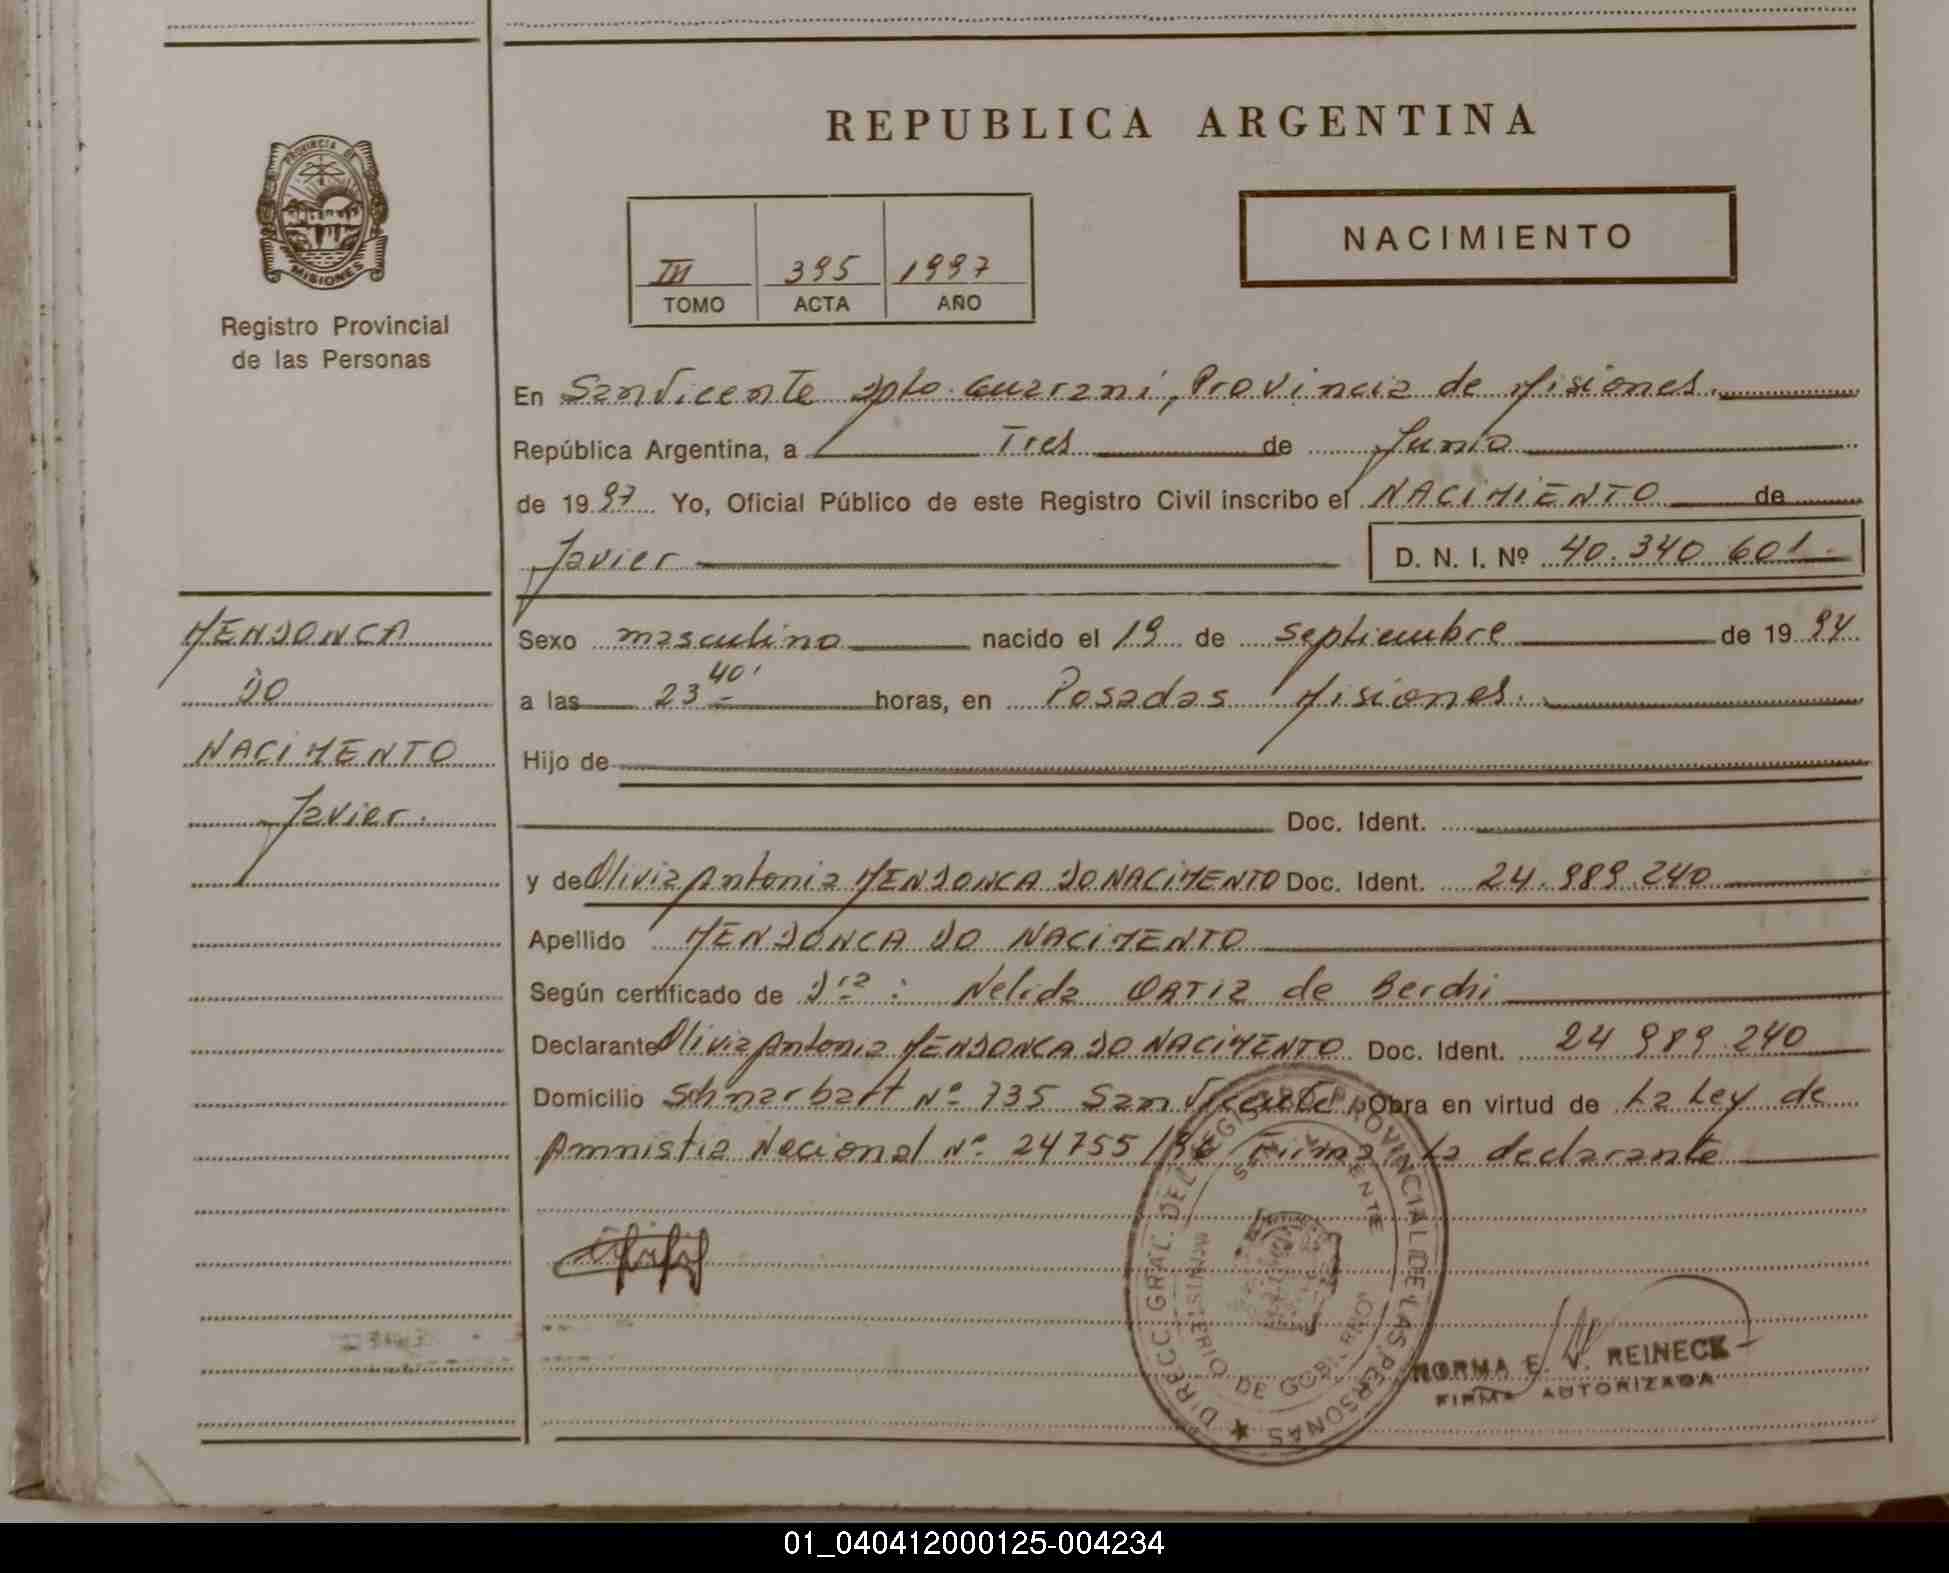 PROVINCIA DE
MISIONES
Registro Provincial
de las Personas
REPUBLICA ARGENTINA
NACIMIENTO
III 395 1997
TOMO ACTA AÑO
En San Vicente Dpto. Guaraní, Provincia de Misiones.
República Argentina, a Tres de Junio
de 1997 Yo, Oficial Público de este Registro Civil inscribo el NACIMIENTO de
Javier D. N. I. Nº 40.340.601.-
MENDONCA
DO
NACIMENTO
Javier.
Sexo masculino nacido el 19 de septiembre de 1994
a las 23 40' horas, en Posadas Misiones.
Hijo de
Doc. Ident.
y de Olivia Antonia MENDONCA DO NACIMENTO Doc. Ident. 24.989.240
Apellido MENDONCA DO NACIMENTO
Según certificado de Dra: Nelida ORTIZ de Berchi
Declarante Olivia Antonia MENDONCA DO NACIMENTO Doc. Ident. 24 989 240
Domicilio Schnarbatt Nº 735 San Vicente Obra en virtud de La Ley de
Amnistia Nacional Nº 24755/96 Firma La declarante
DIRECC. GRAL. DEL REGISTRO PROVINCIAL DE LAS PERSONAS
MINISTERIO DE GOBIERNO
NORMA E. V. REINECK
FIRMA AUTORIZADA
01_040412000125-004234